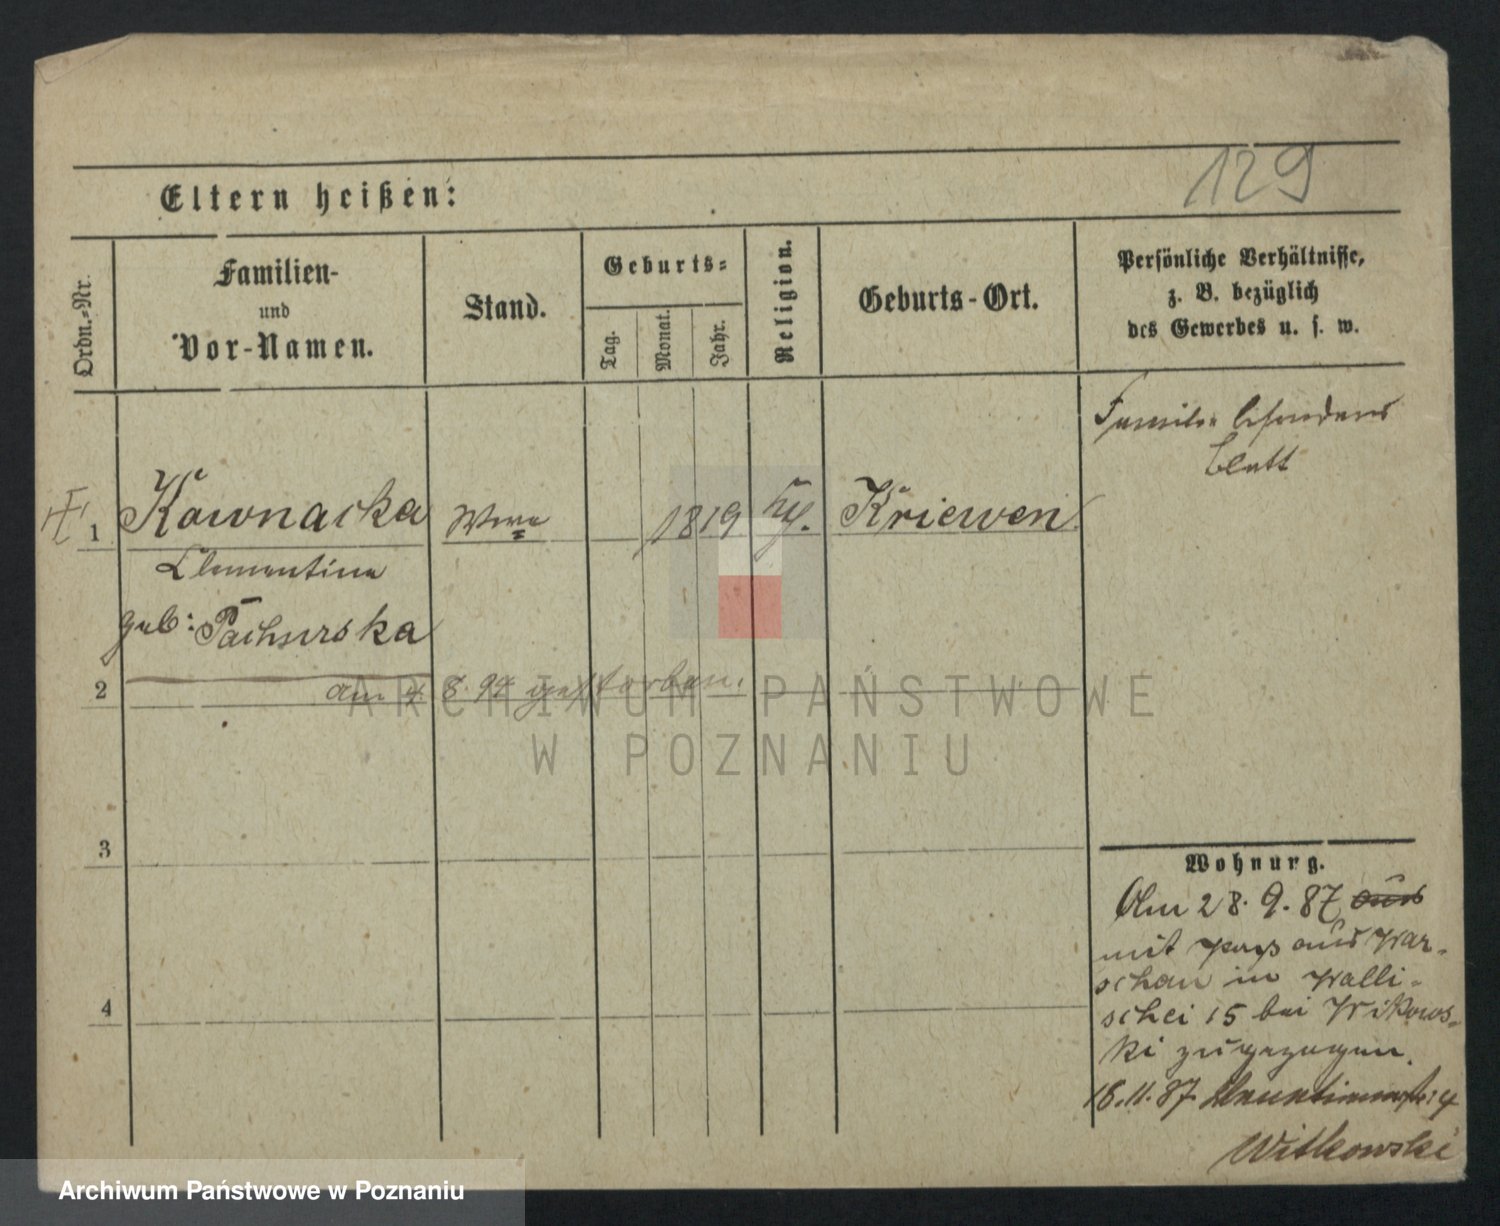 129
Eltern heißen:
Ordn.-Nr.
Familien-
und
Vor-Namen.
Stand.
Geburts-
Tag.
Monat.
Jahr.
Religion.
Geburts-Ort.
Persönliche Verhältnisse,
z. B. bezüglich
des Gewerbes u. s. w.
Familie besonderes
Blatt
1 Kownacka Wwe 1819 kg. Kriewen
Clementine
geb: Pachurska
2 am 4. 8. 94 gestorben.
3
4
Wohnung.
Am 28. 9. 87 aus
mit Pass aus War-
schau in Walli-
schei 15 bei Wikows-
ki zugezogen.
16.11.87
Witkowski
ARCHIWUM PAŃSTWOWE
W POZNANIU
Archiwum Państwowe w Poznaniu